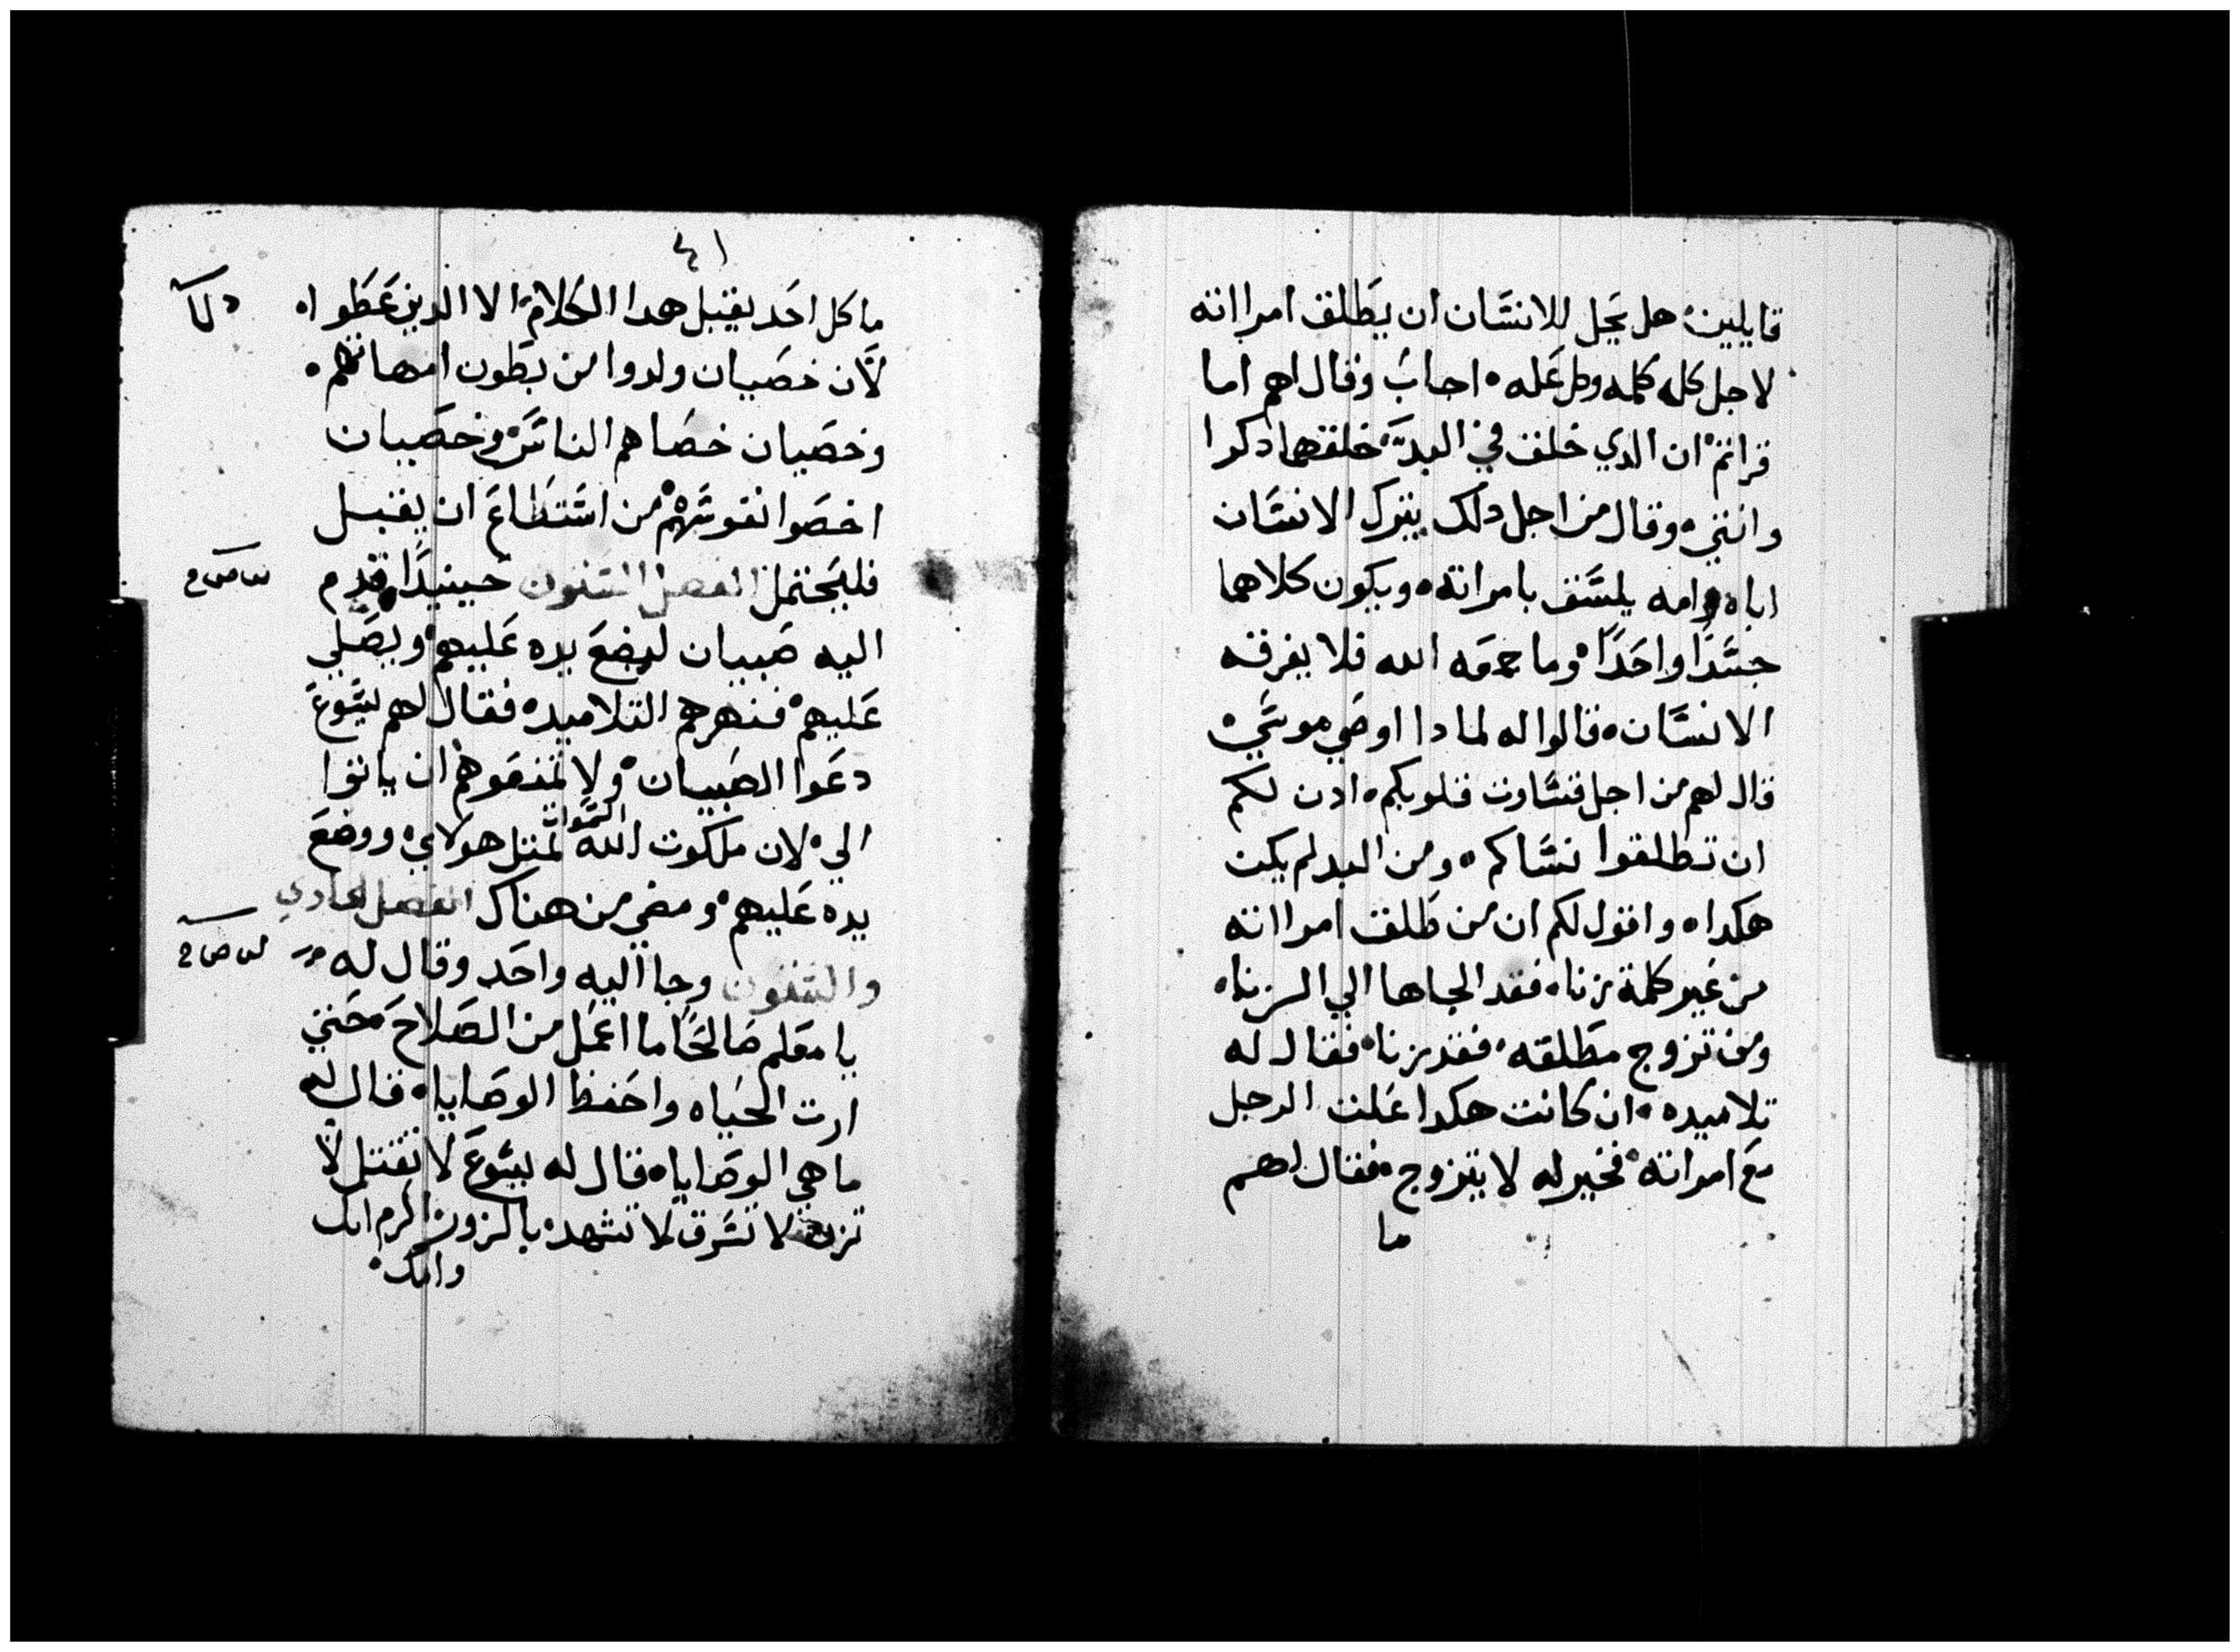 قايلين هل يحل للانسان ان يطلق امراته
لاجل كله كلمه وكل عله اجاب وقال لهم اما
قراتم ان الدي خلق في البدي خلقهما دكرا
وانثي وقال من اجل دلك يترك الانسان
اباه وامه يلسق بامراته ويكون كلاهما
جسدا واحدا وما جمعه الله فلا يفرقه
الانسان قالوا له لمادا اوصي موسي
قال لهم من اجل قساوت قلوبكم ادن لكم
ان تطلقوا نساكم ومن البد لم يكن
هكدا واقول لكم ان من طلق امراته
من غير كلمة زنا فقد الجاها الي الزنا
ومن تزوج مطلقه فقد زنا فقال له
تلاميده ان كانت هكدا علت الرجل
مع امراته فخير له لا يتزوج فقال لهم
ما
٤١
ما كل احد يقبل هدا الكلام الا الدين عطوا
لان خصيان ولدوا من بطون امهاتهم
وخصيان خصاهم الناس وخصيان
اخصوا نفوسهم من استطاع ان يقبل
فليحتمل الفصل الستون حينيدا قدم
اليه صبيان ليضع يده عليهم ويصلي
عليهم فنهرهم التلاميد فقال لهم يسوع
دعوا الصبيان ولا تمنعوهم ان ياتوا
السموات
الي لان ملكوت الله لمثل هولاي ووضع
يده عليهم ومضي من هناك الفصل الحادي
والستون وجا اليه واحد وقال له
يا معلم صالحا ما اعمل من الصلاح حتي
ارت الحياه واحفظ الوصايا قال له
ما هي الوصايا قال له يسوع لا تقتل لا
تزن لا تسرق لا تشهد بالزور اكرم اباك
وامك